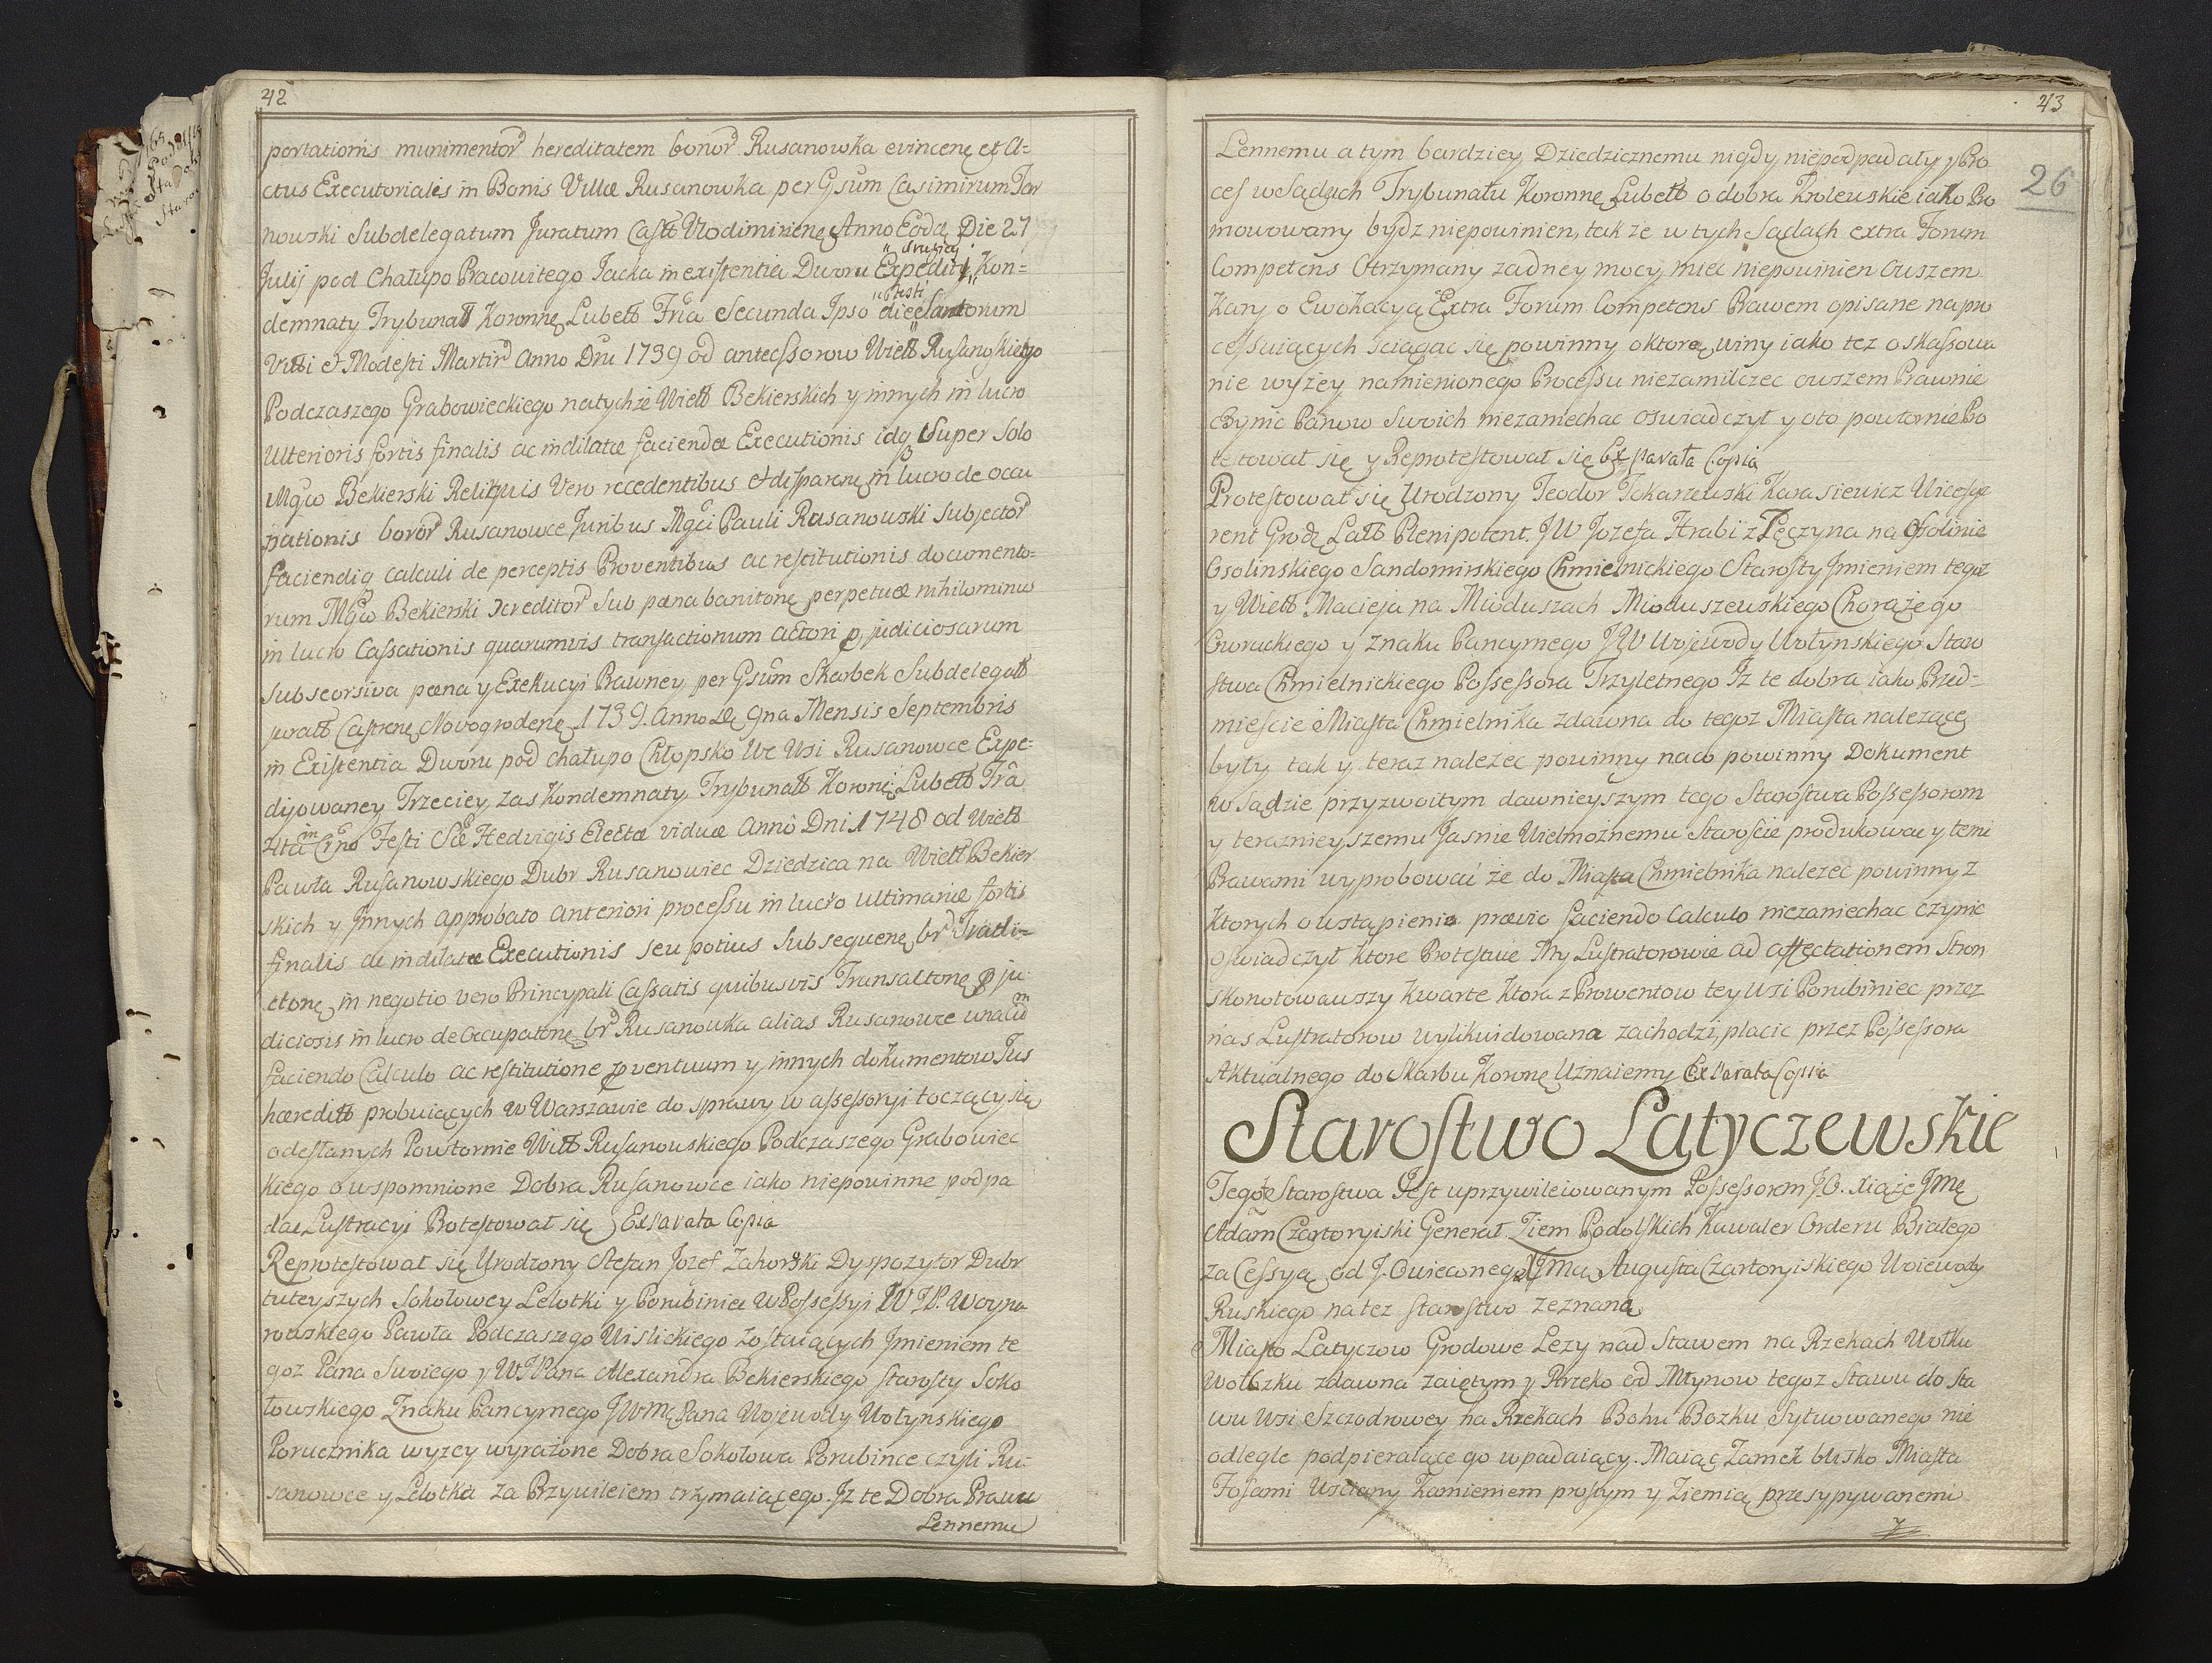 42
portationis munimentor hereditatem bonor Rusanowka evincenę et A=
ctus Executorialis in Bonis Villæ Rusanowka per Gsum Casimirum Tar
nowski Subdelegatum Juratum Castr Wlodimirienę Anno Eodę Die 27
Julij pod Chałupo Pracowitego Jacka in existentia Dworu drugiey Expedit Kon=
demnaty Trybunall Koronnę Lubell Fria Secunda Ipso die festi Santorum
Viti et Modesti Martir Anno Dni 1739 od antecessorow Wiell Rusanoskiego
Podczaszego Grabowieckiego natychże Wiell Bekierskich y innych in lucro
Ulterioris fortis finalis ac indilatæ faciendæ Executionis idq Super Solo
Mgco Bekierski Reliquis Vero recedentibus et disparenę in lucro de occu
pationis bonor Rusanowce Juribus Mgci Pauli Rusanowski Subjector
faciendiq calculi de perceptis Proventibus ac restitutionis documento=
rum Mgco Bekierski creditor sub pæna banitonę perpetuæ nihilominus
in lucro Cassationis quarumvis transactionum actori p judiciosarum
sub seorsiva pæna y Exekucyi Prawney per Gsum Skarbek Subdelegatt
juratt Castrenę Novogrodenę 1739. Anno Dę 9na Mensis Septembris
in Existentia Dworu pod chałupo Chłopsko We Wsi Rusanowce Expe=
dijowaney Trzeciey zas Kondemnaty Trybunall Koronę Lubell Fra
4ta Festi S Hedvigis Electæ viduæ Anno Dni 1748 od Wiell
Pawła Rusanowskiego Dubr Rusanowiec Dziedzica na Wiell Bekier
skich y Innych approbato anteriori processu in lucro ultimariæ fortis
finalis ac indilatæ Executionis seu potius Subsequenę br Tradi=
ctonę in negotio vero Princypali Cassatis quibusvis Transactonę p ju=
diciosis in lucro de Occupatonę br Rusanowka alias Rusanowce unacum
faciendo Calculo ac restitutione pventuum y innych dokumentow Jus
hæreditt probuiących w Warszawie do sprawy w assessoryi toczący się
odesłanych Powtornie Wiell Rusanowskiego Podczaszego Grabowiec
kiego o wspomnione Dobra Rusanowce iako niepowinne podpa
dac Lustracyi Protestował się Exsarata Copia
Reprotestował się Urodzony Stefan Jozef Zahorski Dyspozytor Dubr
tuteyszych Sokołowey Lelotki y Porubiniec w Possessyi W JP. Woyna
rowskiego Pawła Podczaszego Wislickiego zostaiących Imieniem te
goz Pana Swoiego y W JPana Alexandra Bekierskiego Starosty Soko
łowskiego Znaku Pancyrnego JWmę Pana Wojewody Wołynskiego
Porucznika wyzey wyrażone Dobra Sokołowa Porubince czyli Ru=
sanowce y Lelotka za Przywileiem trzymaiącego. Iz te Dobra Prawu
Lennemu
43
26
Lennemu a tym bardziey Dziedzicznemu nigdy niepodpadały y Pro
ces w Sądach Trybunału Koronnę Lubell o dobra Krolewskie iako Pro
mowowany bydz niepowinien, tak ze w tych Sądach extra Forum
Competens Otrzymany zadney mocy miec niepowinien Owszem
Kary o Ewokacyą Extra Forum Competens Prawem opisane na pro
cessuiących sciągac się powinny o ktore winy iako tez o skassowa
nie wyżey namienionego Processu niezamilczec owszem Prawnie
czynic Panow Swoich niezaniechac oswiadczył y oto powtornie Pro
testował się y Reprotestował się Ex sarata Copia
Protestował się Urodzony Teodor Tokarzewski Karasiewicz Vicesge
rent Grodz Latt Plenipotent. JW Jozefa Hrabi z Tęczyna na Ossolinie
Ossolinskiego Sandomirskiego Chmielnickiego Starosty Imieniem tegoz
y Wiell Macieja na Mioduszach Mioduszewskiego Chorążego
Owruckiego y Znaku Pancyrnego JW Wojewody Wołynskiego Staro
stwa Chmielnickiego Possessora Trzyletnego Iz te dobra iako Przed=
miescie Miasta Chmielnika zdawna do tegoz Miasta nalezącę
były tak y teraz nalezec powinny na co powinny Dokument
w sądzie przyzwoitym dawnieyszym tego Starostwa Possessorom
y teraznieyszemu Jasnie Wielmożnemu Staroscie produkowac y temi
Prawami wyprobować że do Miasta Chmielnika nalezec powinny z
ktorych o ustąpienie prævio faciendo Calculo niezaniechac czynic
oswiadczył ktore Protestuie My Lustratorowie ad affectationem Stron
skonotowawszy Kwarte ktora z Prowentow tey Wsi Porubiniec przez
nas Lustratorow wylikwidowana zachodzi, placic przez Possessora
Aktualnego do Skarbu Koronę Uznaiemy Exsarata Copia
Starostwo Latyczewskie
Tegoż Starostwa Jest uprzywileiowanym Possessorem JO. Xiąże Jmę
Adam Czartoryiski Generał Ziem Podolskich Kawaler Orderu Białego
za Cessyą od J. Owieconego Jmci Augusta Czartoryiskiego Woiewody
Ruskiego na tez starostwo zeznaną
Miasto Latyczow Grodowe Lezy nad Stawem na Rzekach Wołku
Wołczku zdawna zaiętym y Rzeko od Młynow tegoz Stawu do sta
wu Wsi Szczodrowey na Rzekach Bohu Bożku sytuowanego nie
odlegle podpieraiące go wpadaiący. Maiąc Zamek blisko Miasta
Fosami Wsciany Kamieniem prostym y Ziemią przesypywanemi
y